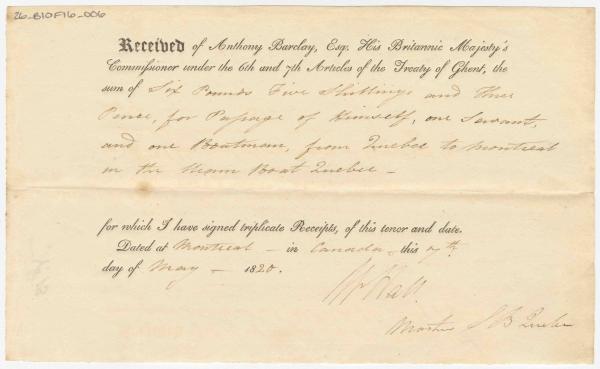 26_B10F16_006
Received of Anthony Barclay, Esq. His Britannic Majesty's
Commissioner under the 6th and 7th Articles of the Treaty of Ghent, the
sum of Six Pounds Five Shillings and Three
Pence, for Passage of Himself, one Servant,
and one Boatman, from Quebec to Montreal
in the Steam Boat Quebec –
for which I have signed triplicate Receipts, of this tenor and date.
Dated at Montreal – in Canada, this 7th
day of May – 1820.
Hall.
Master S B Quebec